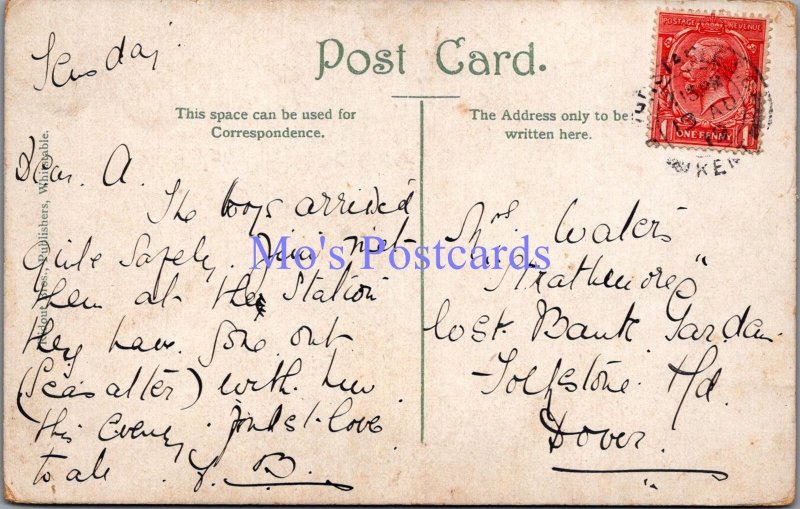 Tuesday
Post Card.
This space can be used for
Correspondence.
The Address only to be
written here.
POSTAGE REVENUE
ONE PENNY
Ridout Bros., Publishers, Whitstable.
Dear A.
The boys arrived
quite safely. Jim met
them at the Station
they have gone out
(Seasalter) with him
this evening. fondest love
to all. B.
Mrs Waters
"Strathmore"
East Bank Garden
Folkstone Rd
Dover.
Mo's Postcards